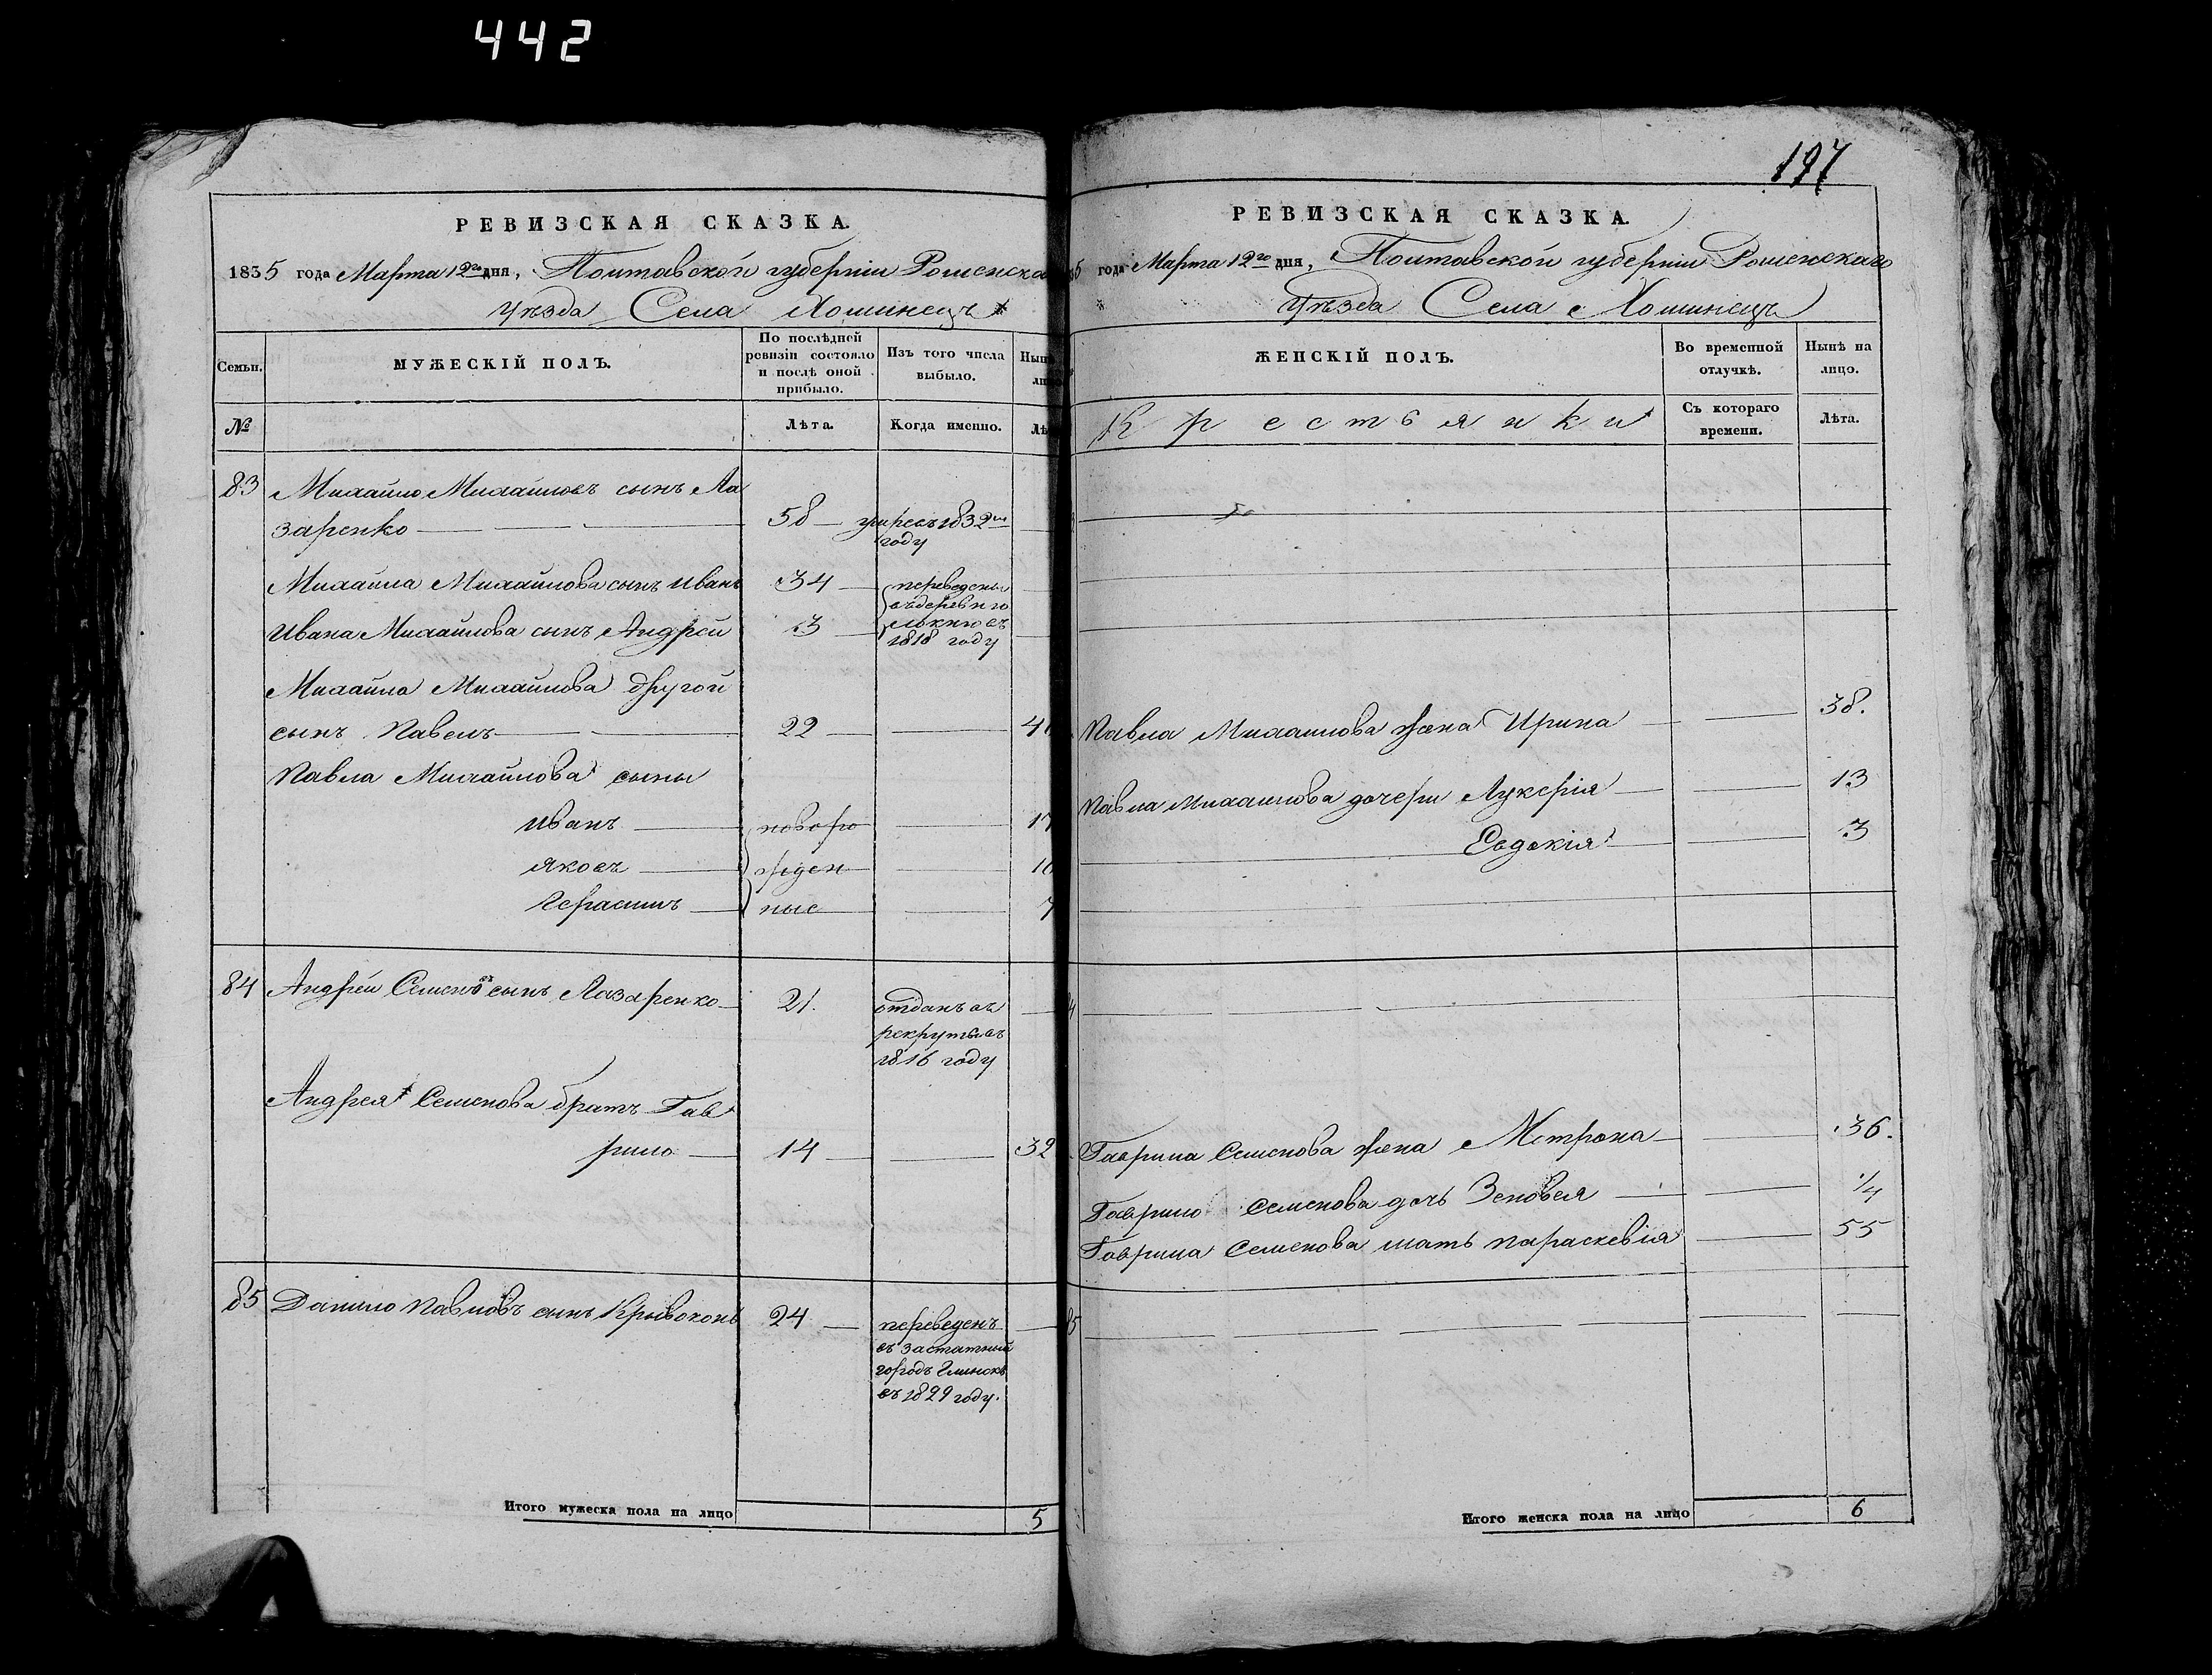 442
РЕВИЗСКАЯ СКАЗКА.
1835 года Марта 12го дня, Полтавской губерніи Роменска
уѣзда Села Хоминецъ
Семьи.
МУЖЕСКІЙ ПОЛЪ.
По послѣдней ревизіи состояло и послѣ оной прибыло.
Изъ того числа выбыло.
№
Лѣта.
Когда именно.
83 Михайло Михайловъ сынъ Ла
заренко 58 умре въ 1832м
году
Михайла Михайлова сынъ Иванъ 34 переведены
въ деревню
Ивана Михайлова сынъ Андрей 3 въ
1818 году
Михайла Михайлова другой
сынъ Павелъ 22
Павла Михайлова сыны
Иванъ новоро
Яковъ жден
Герасимъ ные 7
84 Андрей Семеновъ сынъ Лазаренко 21. отданъ въ
рекруты въ
1816 году
Андрея Семенова братъ Гав
рило 14 32
85 Данило Павловъ сынъ Кривоконь 24 переведенъ
въ заштатный
городъ Глинскъ
въ 1829 году.
Итого мужеска пола на лицо 5
197
РЕВИЗСКАЯ СКАЗКА.
5 года Марта 12го дня, Полтавской губерніи Роменскаго
уѣзда Села Хоминецъ
ЖЕНСКІЙ ПОЛЪ.
Во временной отлучкѣ.
Нынѣ на лицо.
Крестьянки
Съ котораго времени.
Лѣта.
Павла Михайлова жена Ирина 38.
Павла Михайлова дочери Лукерія 13
Евдокія 3
Гаврила Семенова жена Мотрона 36.
Гаврило Семенова дочь Зеновея 1/4
Гаврила Семенова мать Параскевія 55
Итого женска пола на лицо 6